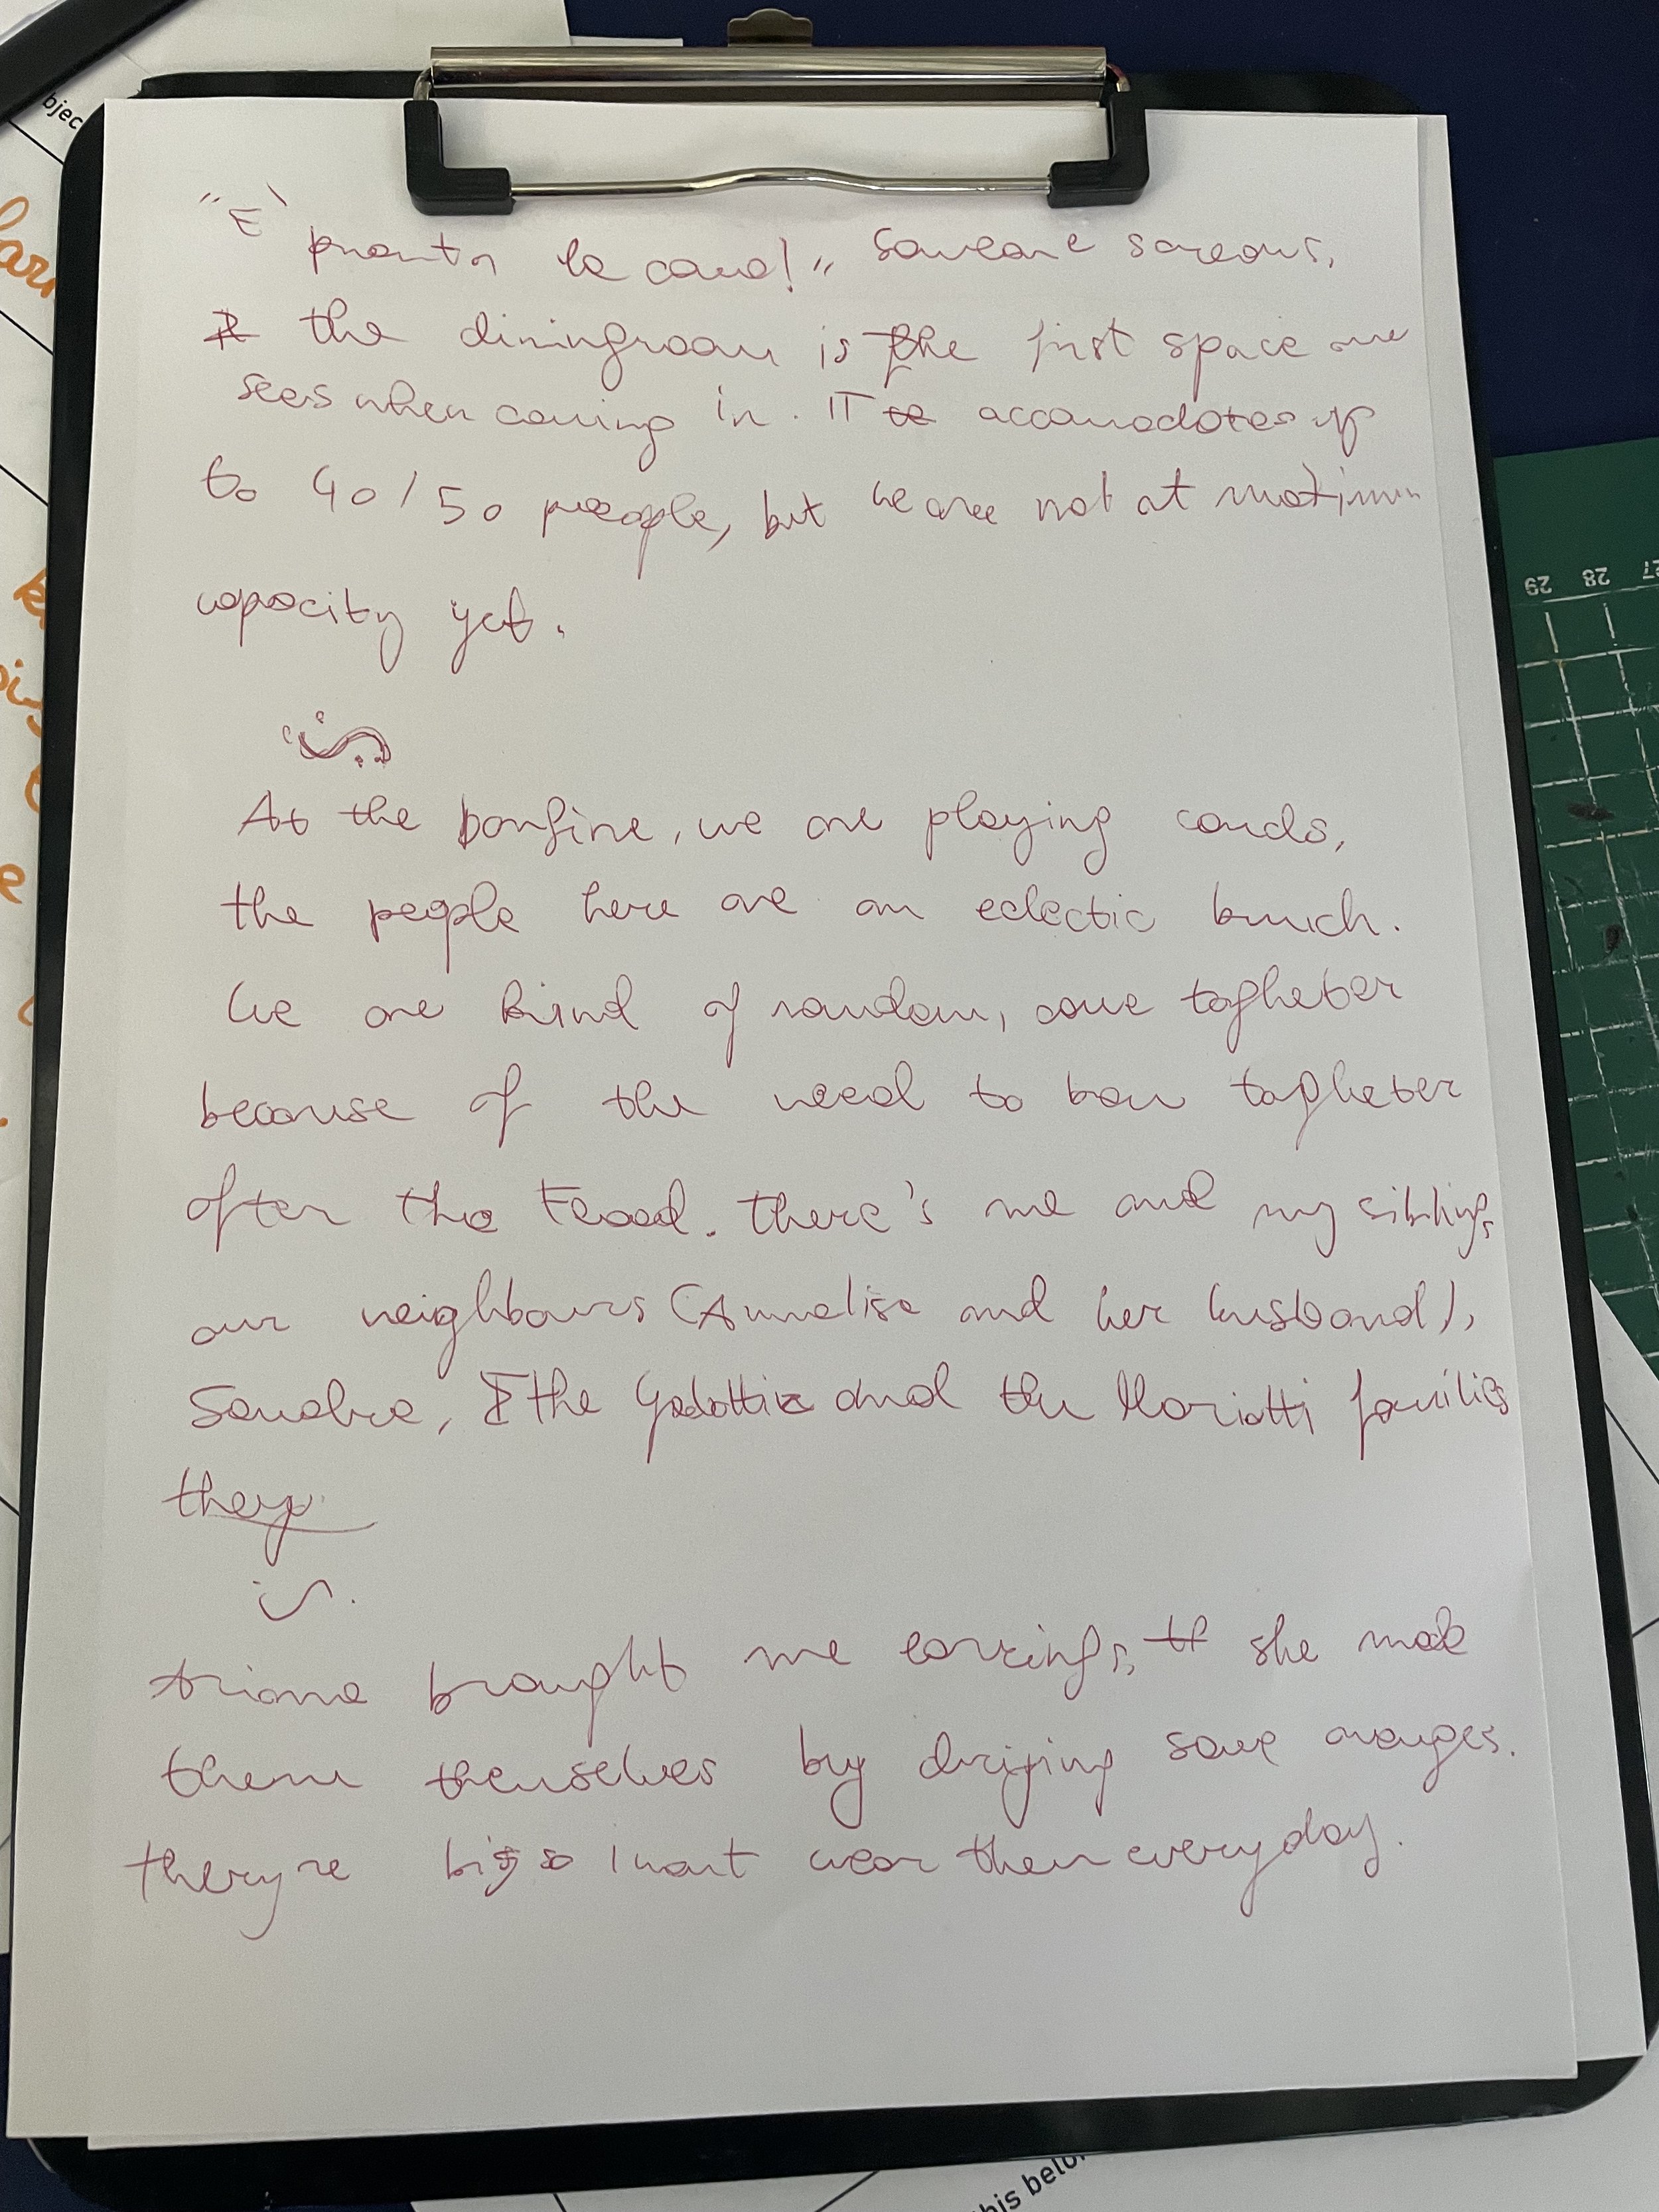 "E' pronta la cena!" Someone screams,
the diningroom is the first space one
sees when coming in. IT accomodates up
to 40/50 people, but we are not at maximum
capacity yet.
At the bonfire, we are playing cards,
the people here are an eclectic bunch.
We are kind of random, came togheter
because of the need to ban togheter
after the Flood. There's me and my siblings,
our neighbours (Annalisa and her husband),
Sandra, the Gadotti and the Mariotti families
they
brought me earrings, she made
them themselves by drying some oranges.
they're big so I wont wear them everyday.
bjec
29 28 27
this belo